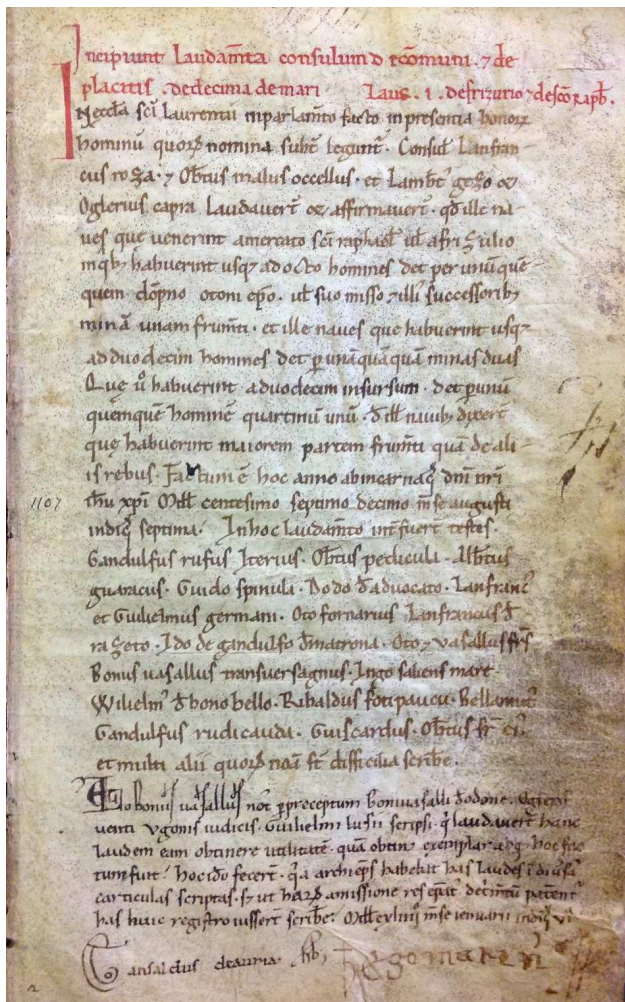 Incipiunt Laudam̅ta consulum d̅ Cōmuni . ⁊ de
placitis . de decima de mari Laus . i . de frizurio ⁊ de sc̅o raph̅ .
IN eccl̅a sc̅i Laurentii in parlam̅to facto in presentia bonoꝝ
hominū quoꝝ nomina subt̅ leguntˀ . Consul̅ Lanfran-
cus roza . ⁊ Ob̅tus malus occellus . et Lamb̅t̅ gezo &
Oglerius capra laudauer̅t & affirmauer̅t . qd̅ ille na-
ues que uenerint a mercato sc̅i raphael̅ ul̅ a frizulio
in qb; habuerint usq; ad octo homines det per unūquē-
quem . dōpno otoni ep̅o . ul̅ suo misso ⁊ illi̅ successorib;
minā unam frum̅ti . et ille naues que habuerint usq;
ad duodecim homines det p̲ unāquāquā minas duas
Quę u̅o habuerint a duodecim insursum . det p̲ unū
quemquē hominē quartinū unū . d̅ ill̅ nauib; dixer̅t
quę habuerint maiorem partem frum̅ti quā de ali-
is rebus . Factum ē hoc anno ab incarnatiōe dn̅i nr̅i
ih̅u xp̅i Mill̅ centesimo septimo decimo m̅se augusti
indic̅ septima . In hoc laudam̅to int̅fuer̅t testes .
Gandulfus rufus Iterius . Ob̅tus pedicula . Alb̅tus
guaracus . Guido spinula . Dodo d̅ aduocato . Lanfranc̅
et Guilielmus germani . Oto fornarius Lanfrancus d̅
razeto . Ido de gandulfo d̅ matrona . Oto ⁊ uasallus fr̅s
Bonus uasallus transuersagnus . Ingo saliens mare .
Wilielm̅ d̅ bono bello . Ribaldus
Gandulfus rudicauda . Guiscardus . Ob̅tus fr̅ ei̅
et multi alii quoꝝ noīa st̅ difficilia scribe̅ .
Ego bonus uasallus not̅ p̲ preceptum boniuasalli d̅ odone . Ogerii
uenti ugonis iudicis . Guilielmi lusii scripsi . q̅ laudauer̅t hanc
laudem eam obtinere utilitatē . quā obtin̅ exemplar
tum fuit . hoc ido̅ fecer̅t . q̅a archiep̅s habebat has laudes ī diu̅sis
carticulis scriptas . s; ut
has huic registro iusser̅t scribe̅ . Mill̅ cxliiij m̅se ienuarii indic̅ vi
Ansaldus de auria
1107
2